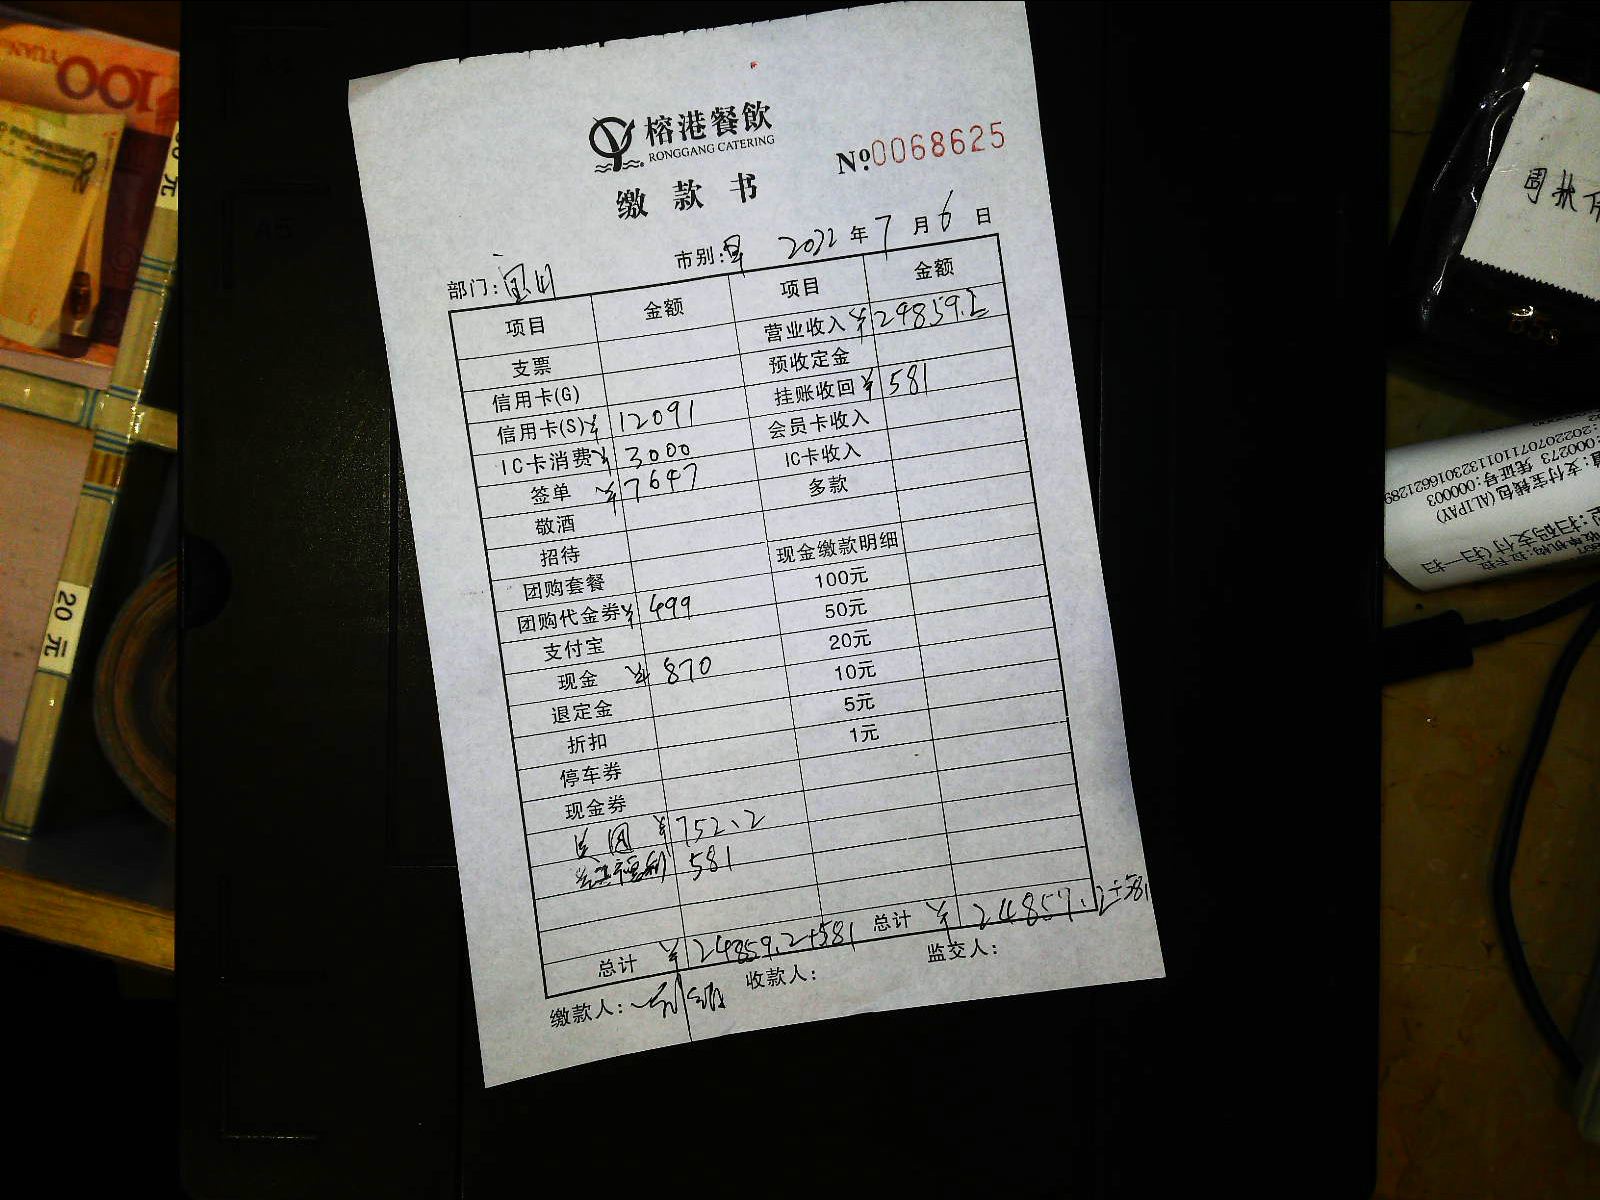 榕港餐飲
RONGGANG CATERING
№0068625
缴款书
部门: 市别: 2022年7月6日
项目 金额 项目 金额
营业收入 ¥24859.2
支票 预收定金
信用卡(G) 挂账收回 ¥581
信用卡(S) ¥12091 会员卡收入
IC卡消费 ¥3000 IC卡收入
签单 ¥7647 多款
敬酒
招待 现金缴款明细
团购套餐 100元
团购代金券 ¥499 50元
支付宝 20元
现金 ¥870 10元
退定金 5元
折扣 1元
停车券
现金券
美团 ¥752.2
581
总计 ¥24859.2+581 总计 ¥24859.2+581
缴款人: 收款人: 监交人:
100
YUAN
20元
元
支付宝钱包(ALIPAY)
扫码支付(扫一扫
000273 凭证号:000003